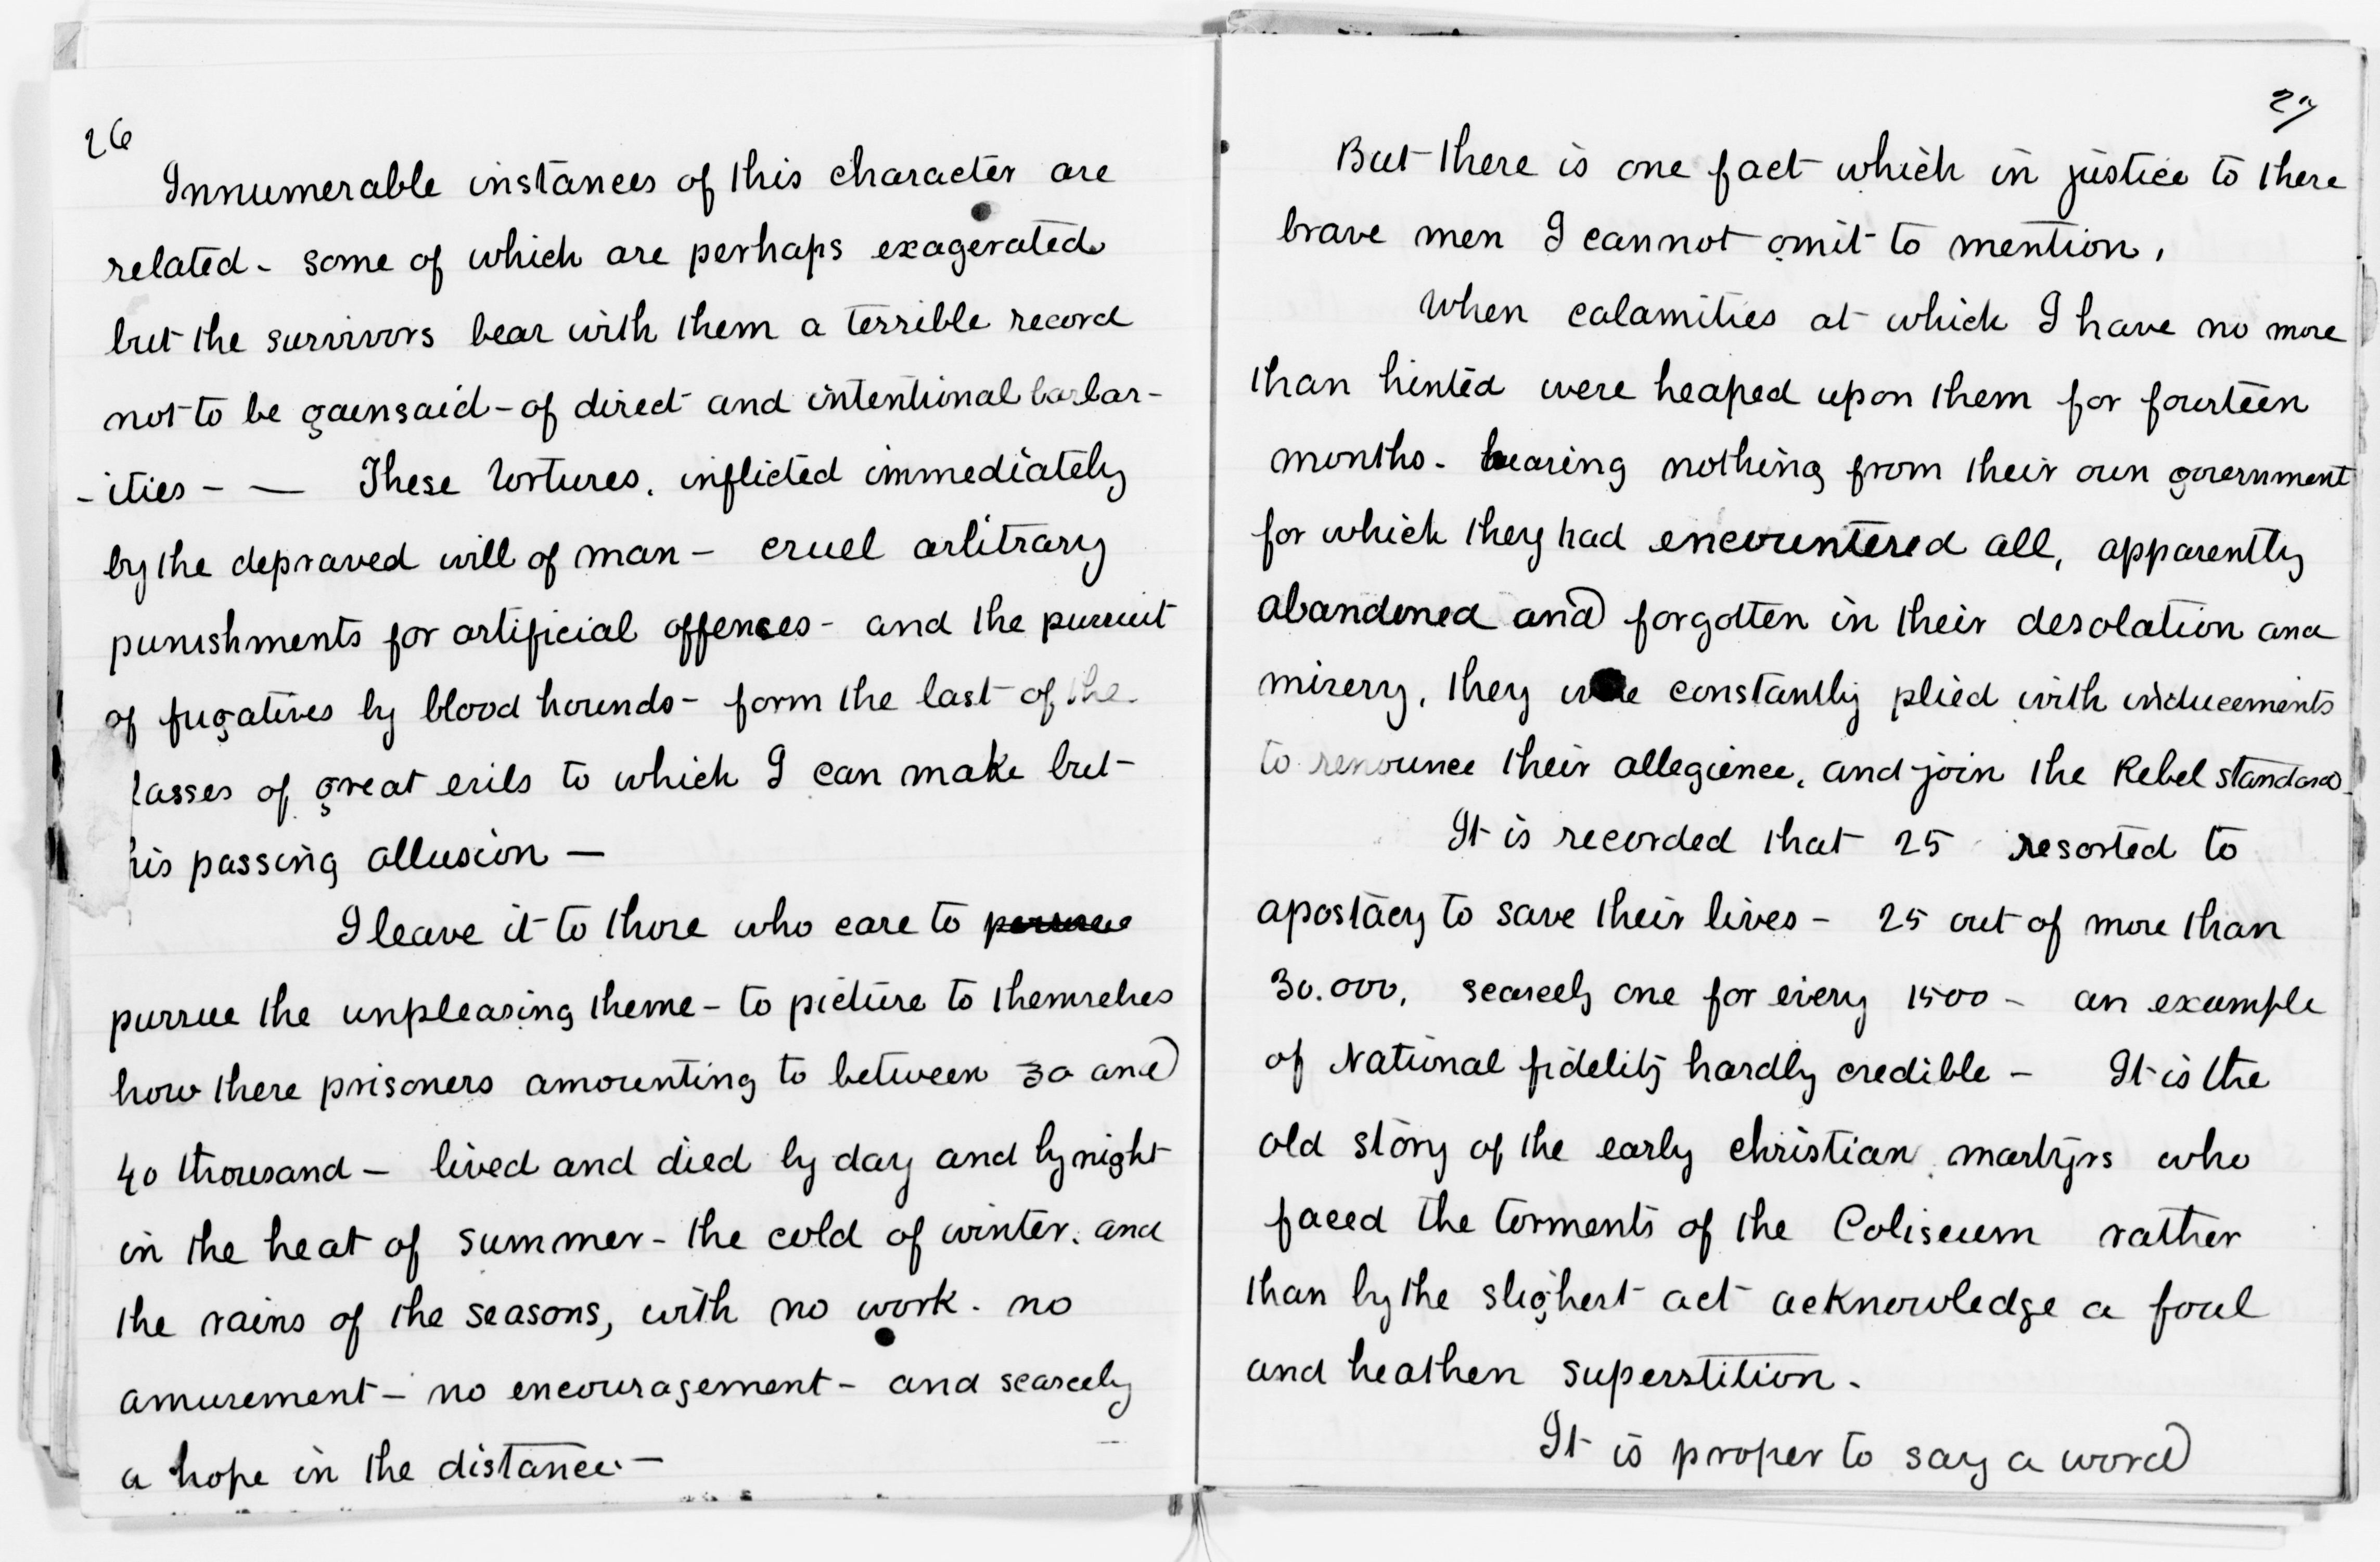 26
Innumerable instances of this character are
related - some of which are perhaps exagerated
but the survivors bear with them a terrible record
not to be gainsaid - of direct and intentional barbar-
-ities - — These tortures. inflicted immediately
by the depraved will of man - cruel arbitrary
punishments for artificial offences - and the pursuit
of fugatives by blood hounds - form the last of the
lasses of great evils to which I can make but
his passing allusion —
I leave it to those who care to
pursue the unpleasing theme - to picture to themselves
how these prisoners amounting to between 30 and
40 thousand — lived and died by day and by night
in the heat of summer - the cold of winter. and
the rains of the seasons, with no work. no
amusement - no encouragement - and scarcely
a hope in the distance. —
27
But there is one fact which in justice to these
brave men I cannot omit to mention.
When calamities at which I have no more
than hinted were heaped upon them for fourteen
months. hearing nothing from their own government
for which they had encountered all, apparently
abandoned and forgotten in their desolation and
misery, they were constantly plied with inducements
to renounce their allegience, and join the Rebel standard.
It is recorded that 25 resorted to
apostacy to save their lives - 25 out of more than
30.000, scarcely one for every 1500 - an example
of National fidelity hardly credible - It is the
old story of the early christian martyrs who
faced the torments of the Coliseum rather
than by the slighest act acknowledge a foul
and heathen superstition.
It is proper to say a word